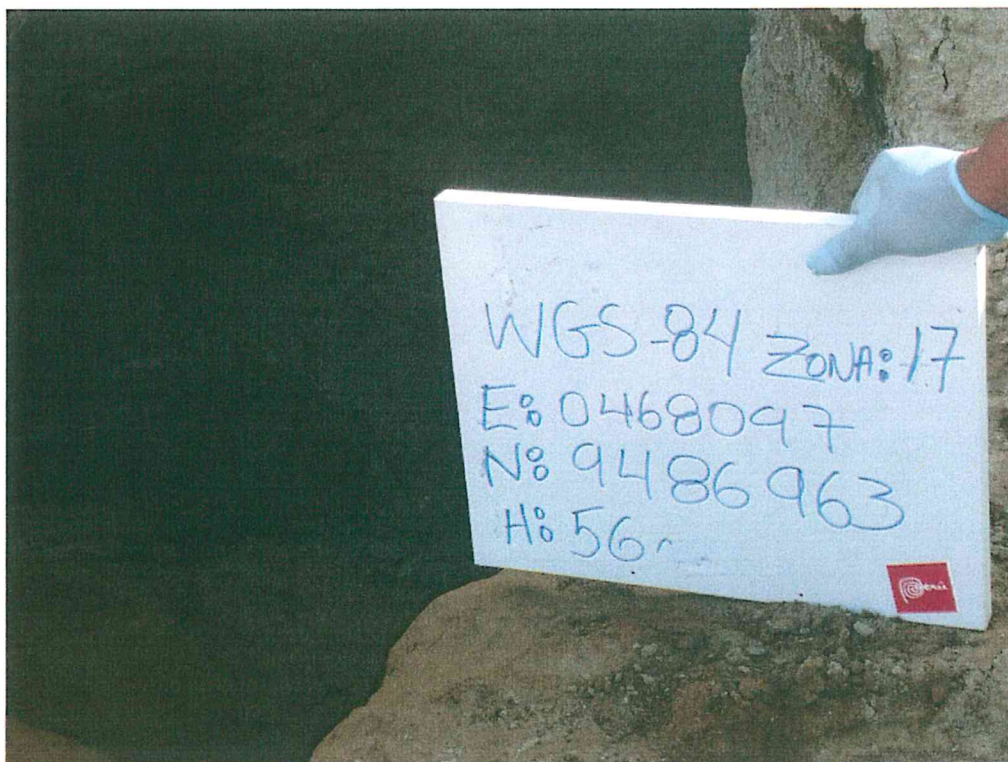 WGS-84 ZONA: 17
E: 0468097
N: 9486963
H: 56
Perú